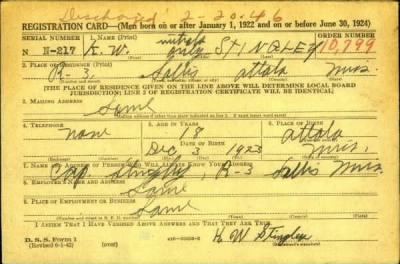 Discharged 2-20-46
REGISTRATION CARD—(Men born on or after January 1, 1922 and on or before June 30, 1924)
SERIAL NUMBER
ORDER NUMBER
initials only
N N-217 K. W. STINGLEY 10,799
2. PLACE OF RESIDENCE (Print)
R-3. Sallis Attala Miss.
[THE PLACE OF RESIDENCE GIVEN ON THE LINE ABOVE WILL DETERMINE LOCAL BOARD
JURISDICTION; LINE 2 OF REGISTRATION CERTIFICATE WILL BE IDENTICAL]
3. MAILING ADDRESS
Same
4. TELEPHONE 5. AGE IN YEARS 6. PLACE OF BIRTH
none 18 Attala
DATE OF BIRTH
Dec 3 1923 Miss.
7. NAME AND ADDRESS OF PERSON WHO WILL ALWAYS KNOW YOUR ADDRESS
Stingley, R-3 Sallis Miss.
8. EMPLOYER'S NAME AND ADDRESS
Same
9. PLACE OF EMPLOYMENT OR BUSINESS
Same
I AFFIRM THAT I HAVE VERIFIED ABOVE ANSWERS AND THAT THEY ARE TRUE.
D. S. S. Form 1
(Revised 6-1-42) (over)
K W Stingley